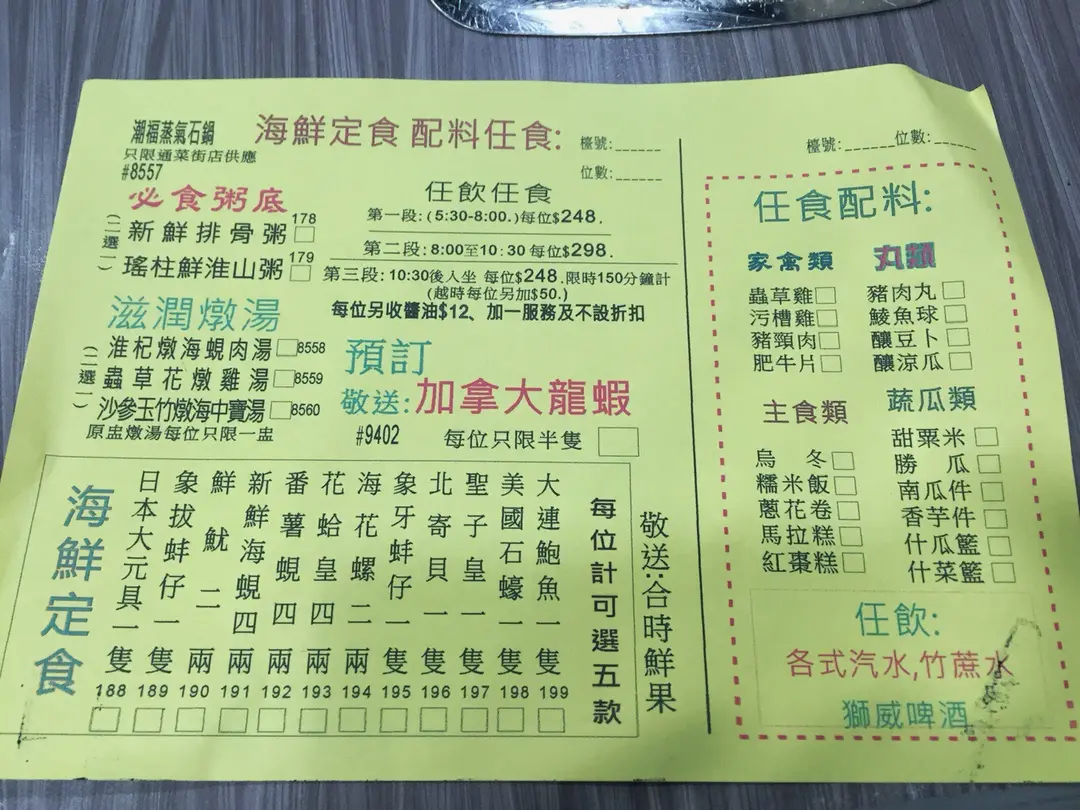 潮福蒸氣石鍋
只限通菜街店供應
#8557
海鮮定食 配料任食:
檯號:______
位數:______
必食粥底
(二選一)
新鮮排骨粥 178
瑤柱鮮淮山粥 179
任飲任食
第一段:(5:30-8:00.)每位$248.
第二段:8:00至10:30 每位$298.
第三段:10:30後入坐 每位$248.限時150分鐘計
(越時每位另加$50.)
每位另收醬油$12、加一服務及不設折扣
滋潤燉湯
(二選一)
淮杞燉海蜆肉湯 8558
蟲草花燉雞湯 8559
沙參玉竹燉海中寶湯 8560
原盅燉湯每位只限一盅
預訂
敬送:加拿大龍蝦
#9402 每位只限半隻
海鮮定食
日本大元貝一隻 188
象拔蚌仔一隻 189
鮮魷二兩 190
新鮮海蜆四兩 191
番薯蜆四兩 192
花蛤皇四兩 193
海花螺二兩 194
象牙蚌仔一隻 195
北寄貝一隻 196
聖子皇一隻 197
美國石蠔一隻 198
大連鮑魚一隻 199
每位計可選五款
敬送:合時鮮果
檯號:______位數:_____
任食配料:
家禽類
蟲草雞
污槽雞
豬頸肉
肥牛片
丸類
豬肉丸
鯪魚球
釀豆卜
釀涼瓜
主食類
烏 冬
糯米飯
蔥花卷
馬拉糕
紅棗糕
蔬瓜類
甜粟米
勝 瓜
南瓜件
香芋件
什瓜籃
什菜籃
任飲:
各式汽水,竹蔗水
獅威啤酒